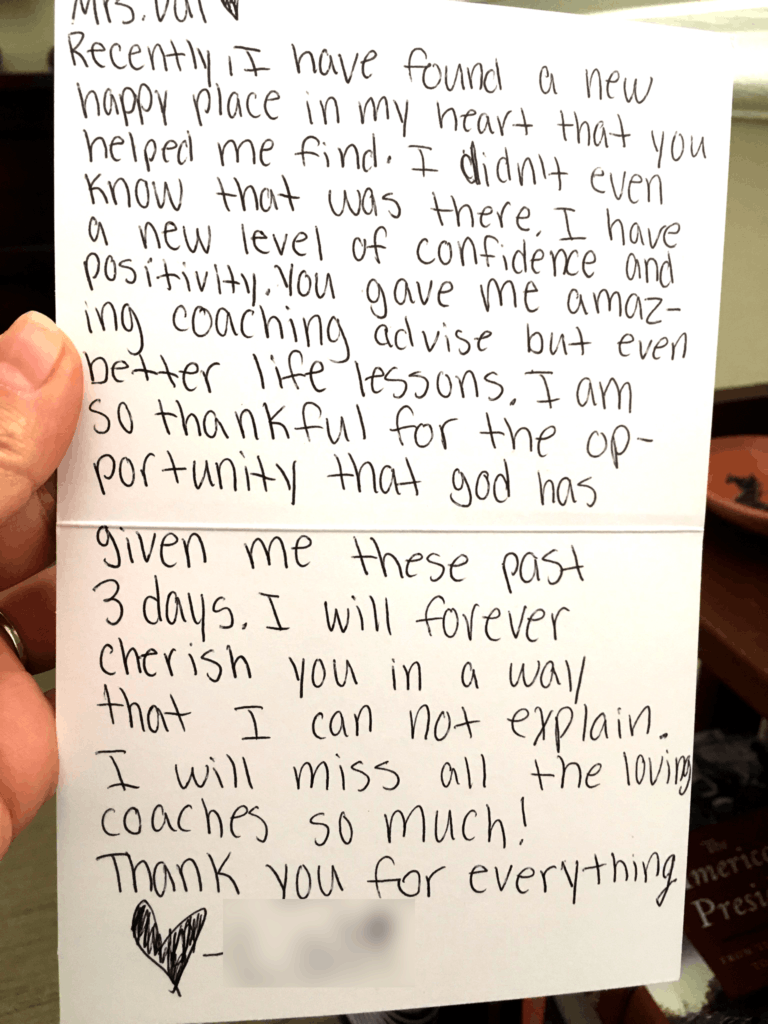 Mrs. Val ♥
Recently, I have found a new
happy place in my heart that you
helped me find. I didn't even
know that was there. I have
a new level of confidence and
positivity. You gave me amaz-
ing coaching advise but even
better life lessons. I am
so thankful for the op-
portunity that god has
given me these past
3 days. I will forever
cherish you in a way
that I can not explain.
I will miss all the loving
coaches so much!
Thank you for everything
♥ -
The
America
Presi